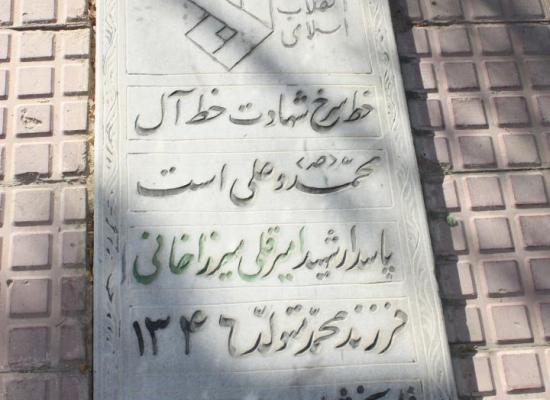 انقلاب
اسلامی
خط سرخ شهادت خط آل
محمد (ص) و علی است
پاسدار شهید امیرقلی میرزاخانی
فرزند محمد متولد ۱۳۴۶